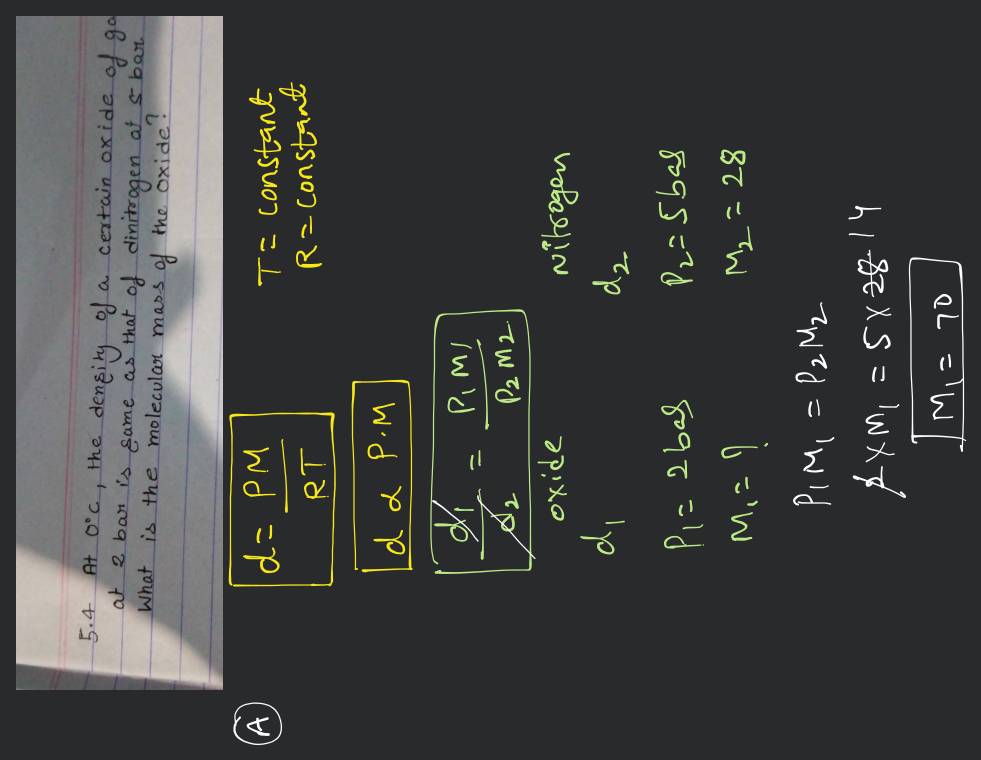 5.4 At 0°C, the density of a certain oxide of ga
at 2 bar is same as that of dinitrogen at 5 bar.
What is the molecular mass of the oxide?
A
d = PM / RT
T = constant
R = constant
d α P.M
d1 / d2 = P1 M1 / P2 M2
oxide nitrogen
d1 d2
P1 = 2 bar P2 = 5 bar
M1 = ? M2 = 28
P1 M1 = P2 M2
2 x M1 = 5 x 28 14
M1 = 70